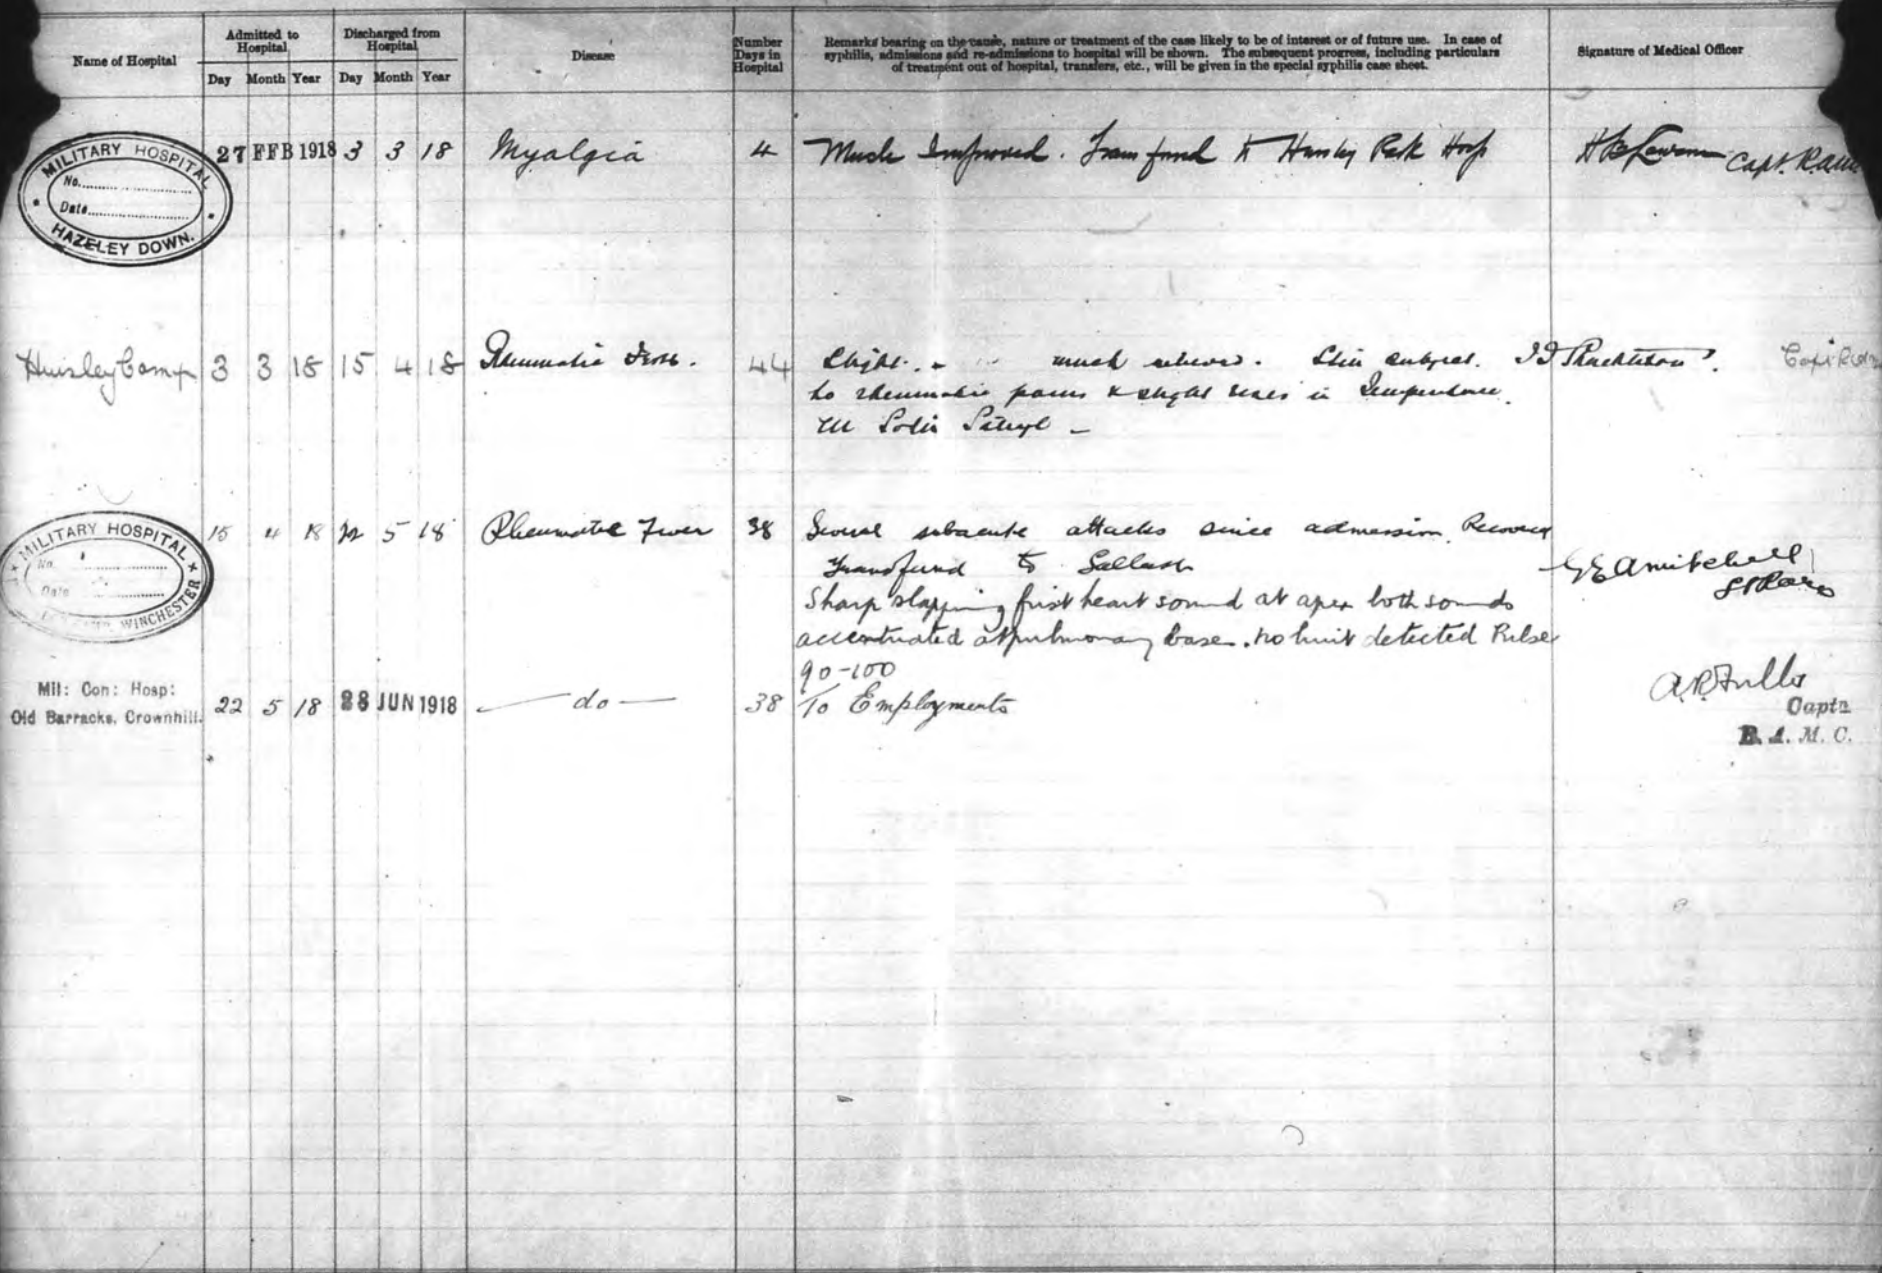 Name of Hospital
Admitted to Hospital
Discharged from Hospital
Disease
Number Days in Hospital
Remarks bearing on the cause, nature or treatment of the case likely to be of interest or of future use. In case of
syphilis, admissions and re-admissions to hospital will be shown. The subsequent progress, including particulars
of treatment out of hospital, transfers, etc., will be given in the special syphilis case sheet.
Signature of Medical Officer
Day Month Year Day Month Year
MILITARY HOSPITAL
No.
Date
HAZELEY DOWN.
27 FEB 1918 3 3 18 Myalgia 4 Much Improved. Transferred to Hursley Park Hosp Capt. R.A.M.C
Hursley Camp 3 3 18 15 4 18 Rheumatic 44 Slight much relieved. Still subject.
to rheumatic pains & slight rises in Temperature.
MILITARY HOSPITAL
No.
Date
WINCHESTER
15 4 18 22 5 18 Rheumatic Fever 38 Several subacute attacks since admission.
Transferred to G E A Mitchell
Sharp slapping first heart sound at apex both sounds
accentuated at pulmonary base. no bruit detected Pulse
90-100
Mil: Con: Hosp:
Old Barracks, Crownhill.
22 5 18 28 JUN 1918 — do — 38 To Employments
A.R. Fuller
Captn
R. A. M. C.